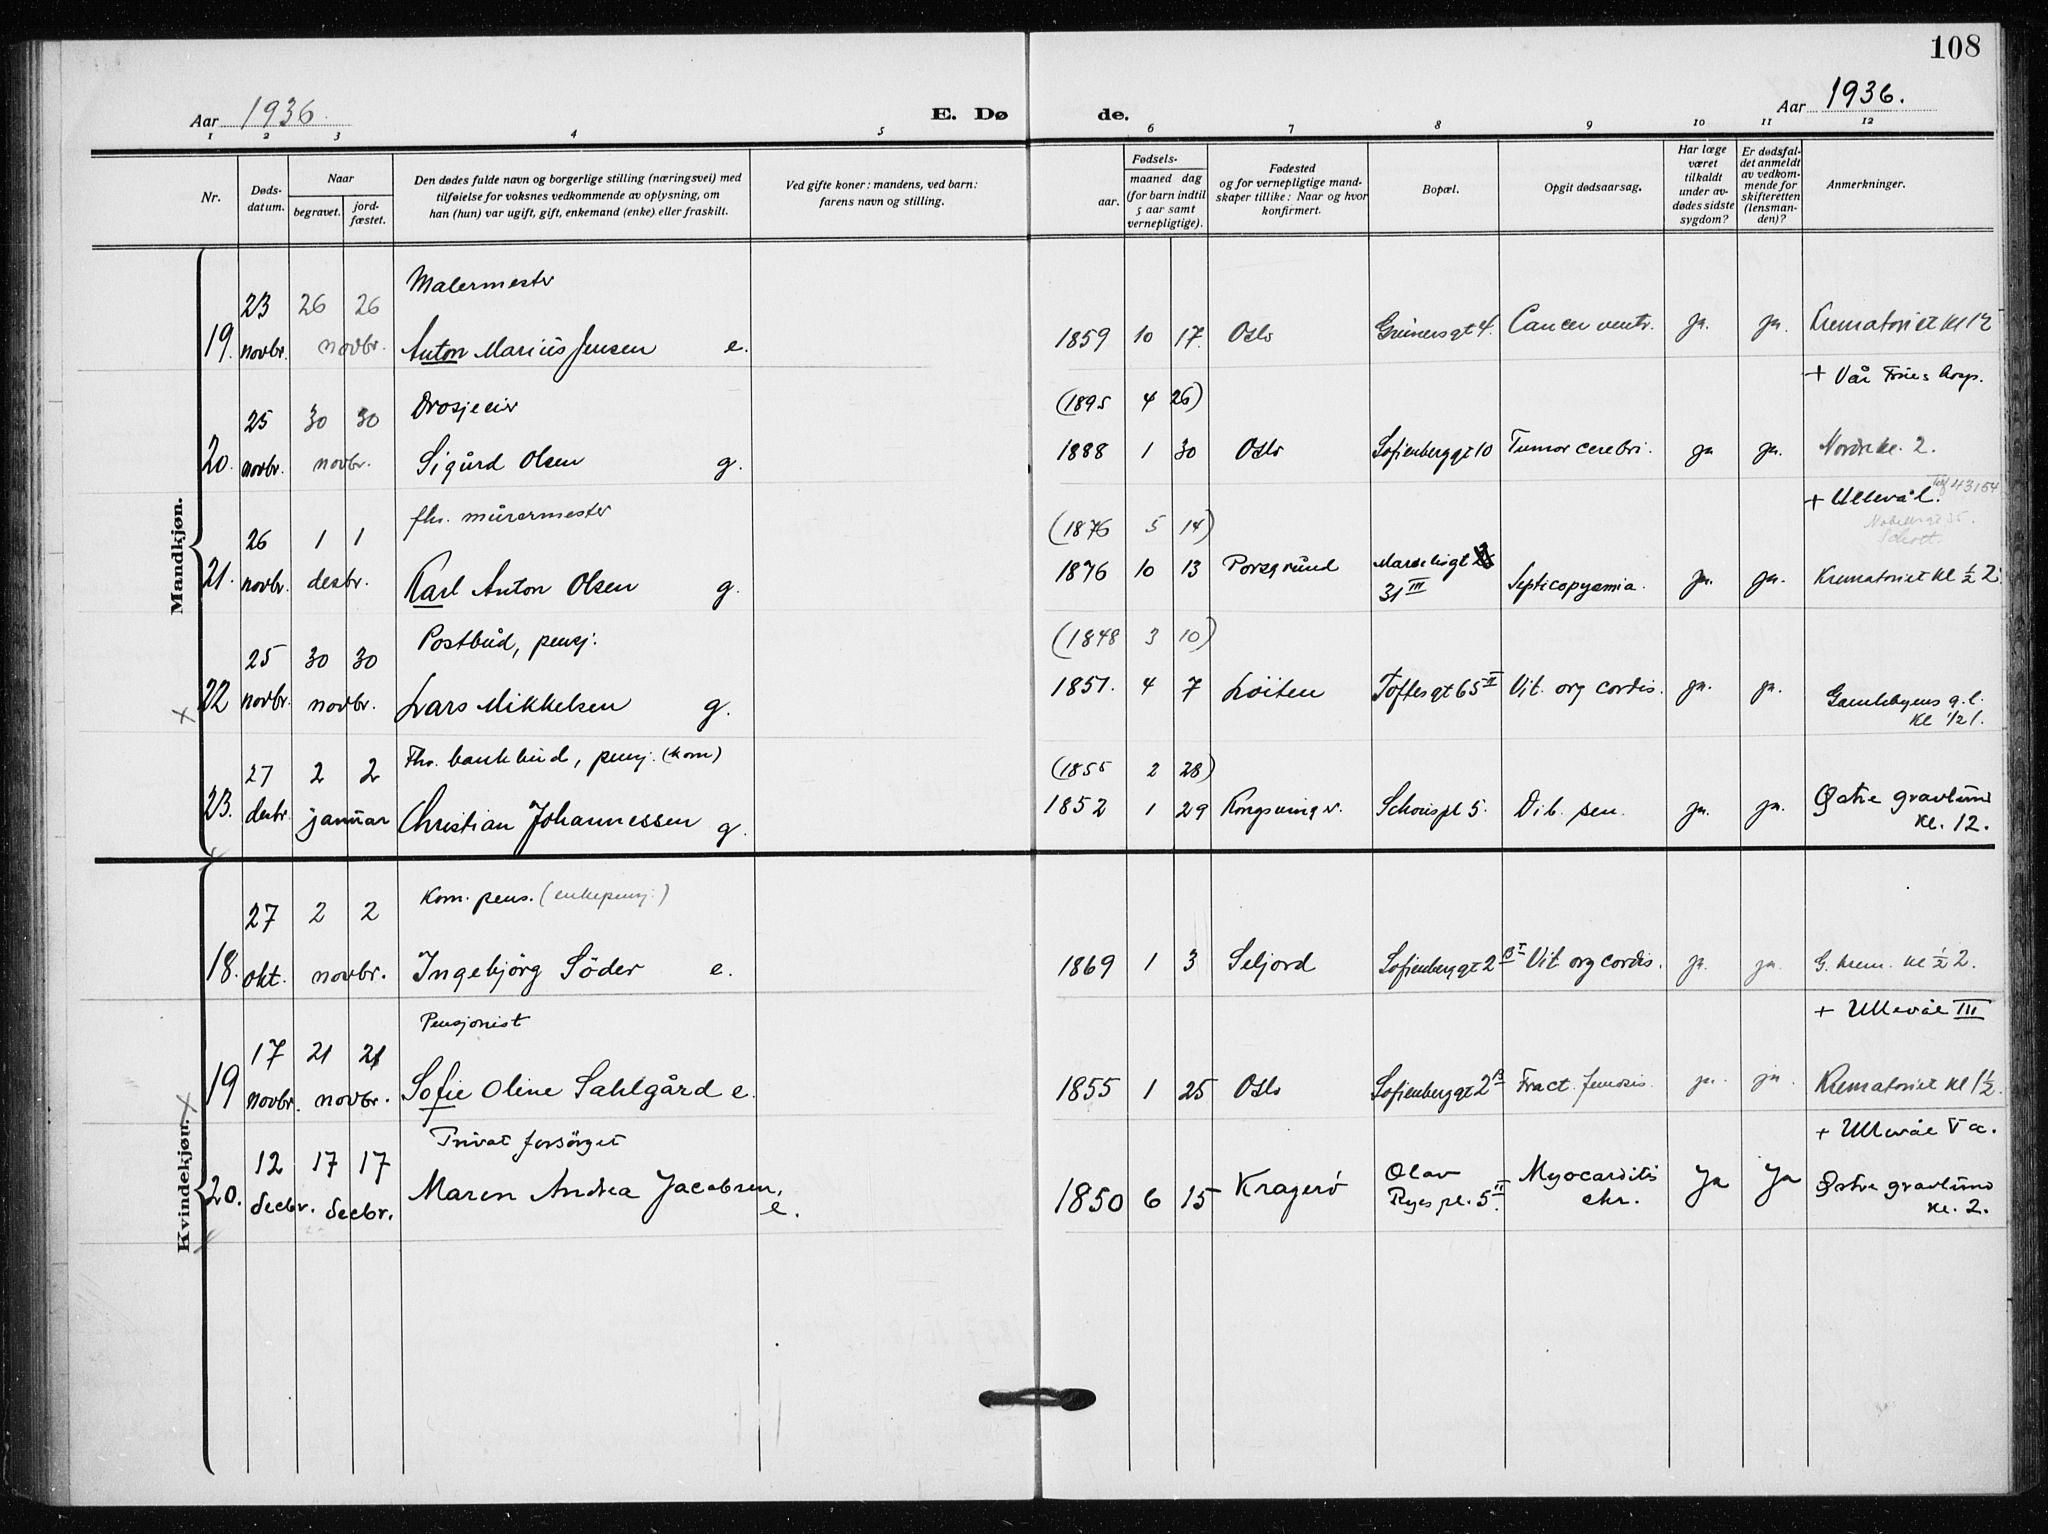 108
Aar 1936. E. Dø de. Aar 1936.
1 2 3 4 5 6 7 8 9 10 11 12
Nr.
Døds-
datum.
Naar
begravet.
jord-
fæstet.
Den dødes fulde navn og borgerlige stilling (næringsvei) med
tilføielse for voksnes vedkommende av oplysning, om
han (hun) var ugift, gift, enkemand (enke) eller fraskilt.
Ved gifte koner: mandens, ved barn:
farens navn og stilling.
Fødsels-
aar.
maaned dag
(for barn indtil
5 aar samt
vernepligtige).
Fødested
og for vernepligtige mand-
skaper tillike: Naar og hvor
konfirmert.
Bopæl.
Opgit dødsaarsag.
Har læge
været
tilkaldt
under av-
dødes sidste
sygdom?
Er dødsfal-
det anmeldt
av vedkom-
mende for
skifteretten
(lensman-
den)?
Anmerkninger.
Mandkjøn.
Malermester
23 26 26
19. novbr. novbr. Anton Marius Jensen e. 1859 10 17. Oslo Grünersgt 4. Cancer ventr. ja. ja. Krematoriet kl 1½
+ Vår Frues hosp.
Drosjeeier (1895 4 26)
25 30 30
20. novbr. novbr. Sigurd Olsen g. 1888 1 30 Oslo Sofienberggt 10 Tumor cerebri. ja ja. Nordre kl. 2.
+ Ullevål. Tlf 43154
fhv. murermester (1876 5 14)
26 1 1
21. novbr. desbr. Karl Anton Olsen g. 1876 10 13 Porsgrund
31 III Septicopyæmia. ja. ja. Krematoriet kl ½ 2
Postbud, pensj. (1848 3 10)
25 30 30
22 novbr. novbr. Lars Mikkelsen g. 1851. 4 7 Løiten Toftesgt 65 II Vit. org cordis. ja. ja. Gamlebyens g.l.
kl ½ 1.
Fhv. bankbud, pensj. (kom) (1855 2 28)
27 2 2
23. desbr januar Christian Johannessen g. 1852 1 29 Kongsvinger. Schouspl 5. Dib. sen. ja. ja. Østre gravlund
kl. 12.
Kvindekjøn.
Kom. pens. (enkepensj.)
27 2 2
18. okt. novbr. Ingebjørg Söder e. 1869 1 3 Seljord Sofienberggt 2 B I Vit org cordis. ja. ja. G. krem. kl ½ 2.
+ Ullevål III
Pensjonist
17 21 21
19 novbr. novbr. Sofie Oline Sahlgård e. 1855 1 25 Oslo Sofienberggt 2 B Fract. femoris. ja. ja. Krematoriet kl 1½.
+ Ullevål V a.
Privat forsørget
12 17 17
20. decbr. decbr. Maren Andrea Jacobsen, e. 1850 6 15 Kragerø Olav
Ryes pl. 5 II. Myocarditis
chr. Ja Ja Østre gravlund
kl. 2.